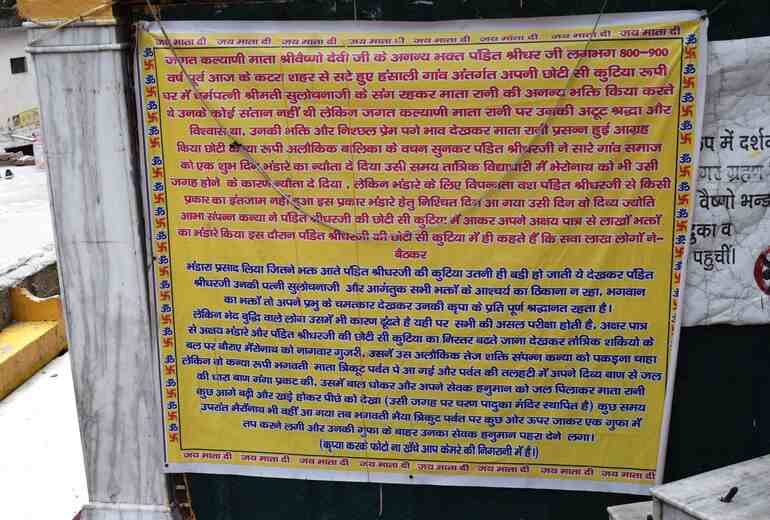 जय माता दी जय माता दी जय माता दी जय माता दी जय माता दी जय माता दी जय माता दी जय माता दी जय माता दी
जगत कल्याणी माता श्रीवैष्णो देवी जी के अनन्य भक्त पंडित श्रीधर जी लगभग 800-900
वर्ष पूर्व आज के कटरा शहर से सटे हुए हंसाली गांव अंतर्गत अपनी छोटी सी कुटिया रूपी
घर में धर्मपत्नी श्रीमती सुलोचनाजी के संग रहकर माता रानी की अनन्य भक्ति किया करते
थे उनके कोई संतान नहीं थी लेकिन जगत कल्याणी माता रानी पर उनकी अटूट श्रद्धा और
विश्वास था, उनकी भक्ति और निश्छल प्रेम पगे भाव देखकर माता रानी प्रसन्न हुई आग्रह
किया छोटी रूपी अलौकिक बालिका के वचन सुनकर पंडित श्रीधरजी ने सारे गांव समाज
को एक शुभ दिन भंडारे का न्यौता दे दिया उसी समय तांत्रिक विद्याधारी में भैरोनाथ को भी उसी
जगह होने के कारण न्यौता दे दिया , लेकिन भंडारे के लिए विपन्नता वश पंडित श्रीधरजी से किसी
प्रकार का इंतजाम नहीं हुआ इस प्रकार भंडारे हेतु निश्चित दिन आ गया उसी दिन वो दिव्य ज्योति
आभा संपन्न कन्या ने पंडित श्रीधरजी की छोटी सी कुटिया में आकर अपने अक्षय पात्र से लाखों भक्तों
का भंडारे किया इस दौरान पंडित श्रीधरजी की छोटी सी कुटिया में ही कहते हैं कि सवा लाख लोगों ने-
बैठकर
भंडारा प्रसाद लिया जितने भक्त आते पंडित श्रीधरजी की कुटिया उतनी ही बड़ी हो जाती ये देखकर पंडित
श्रीधरजी उनकी पत्नी सुलोचनाजी और आगंतुक सभी भक्तों के आश्चर्य का ठिकाना न रहा, भगवान
का भक्तों तो अपने प्रभु के चमत्कार देखकर उनकी कृपा के प्रति पूर्ण श्रद्धानत रहता है।
लेकिन भेद बुद्धि वाले लोग उसमें भी कारण ढूंढते है यही पर सभी की असल परीक्षा होती है, अक्षर पात्र
से अक्षय भंडारे और पंडित श्रीधरजी की छोटी सी कुटिया का निरंतर बढते जाना देखकर तांत्रिक शक्तियों के
बल पर बौराए भैरोनाथ को नागवार गुजरी, उसने उस अलौकिक तेज शक्ति संपन्न कन्या को पकड़ना चाहा
लेकिन वो कन्या रूपी भगवती माता त्रिकूट पर्वत पे आ गई और पर्वत की तलहटी में अपने दिव्य बाण से जल
की धारा बाण गंगा प्रकट की, उसमें बाल धोकर और अपने सेवक हनुमान को जल पिलाकर माता रानी
कुछ आगे बढी और खड़े होकर पीछे को देखा (उसी जगह पर चरण पादुका मंदिर स्थापित है) कुछ समय
उपरांत भैरोंनाथ भी वहीं आ गया तब भगवती मैया त्रिकुट पर्वत पर कुछ और ऊपर जाकर एक गुफा में
तप करने लगी और उनकी गुफा के बाहर उनका सेवक हनुमान पहरा देने लगा।
(कृप्या करके फोटो ना खींचे आप कैमरे की निगरानी में है।)
जय माता दी जय माता दी जय माता दी जय माता दी जय माता दी जय माता दी जय माता दी जय माता दी
प में दर्श
ग्रहण
वैष्णो भन्ड
दुका व
पहुचीं।